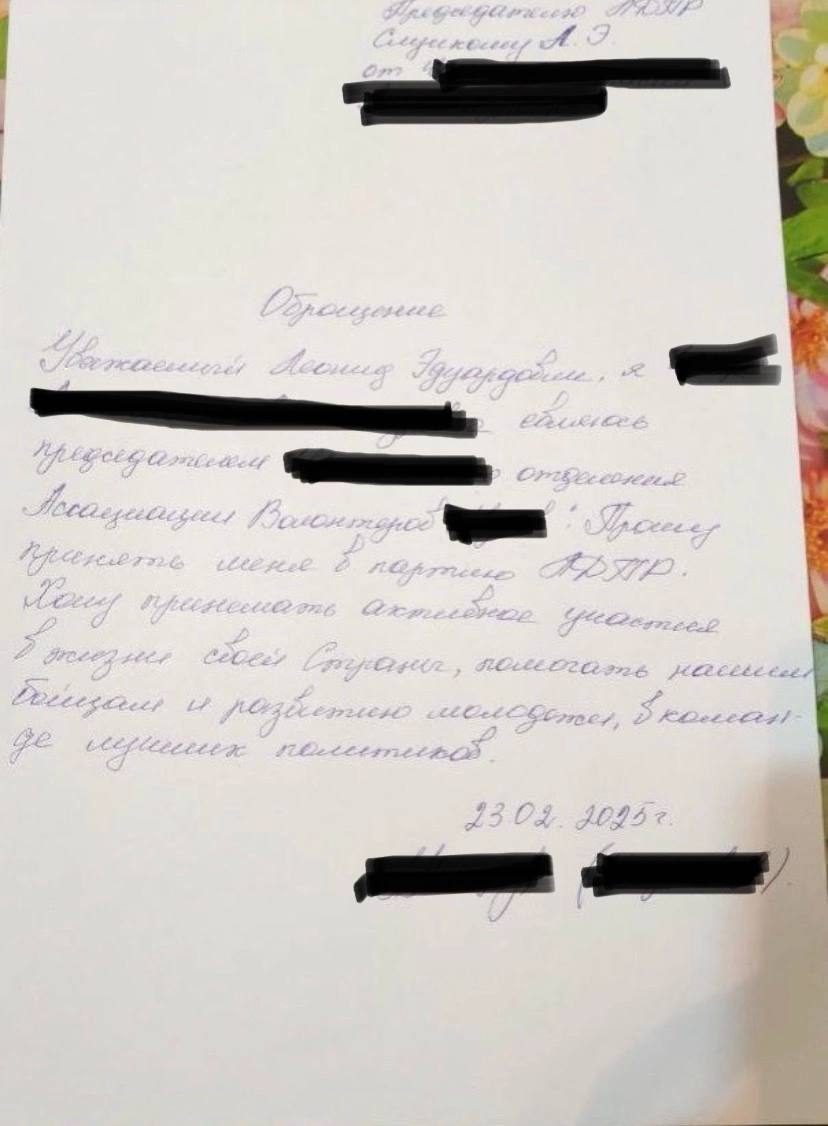 Председателю ЛДПР
Слуцкому Л. Э.
от
Обращение
Уважаемый Леонид Эдуардович, я
являюсь
председателем отделения
Ассоциации Волонтеров Прошу
принять меня в партию ЛДПР.
Хочу принемать активное участия
в жизни своей Страны, помогать нашим
бойцам и развитию молодежи, в коман-
де лучших политиков.
23.02.2025г.